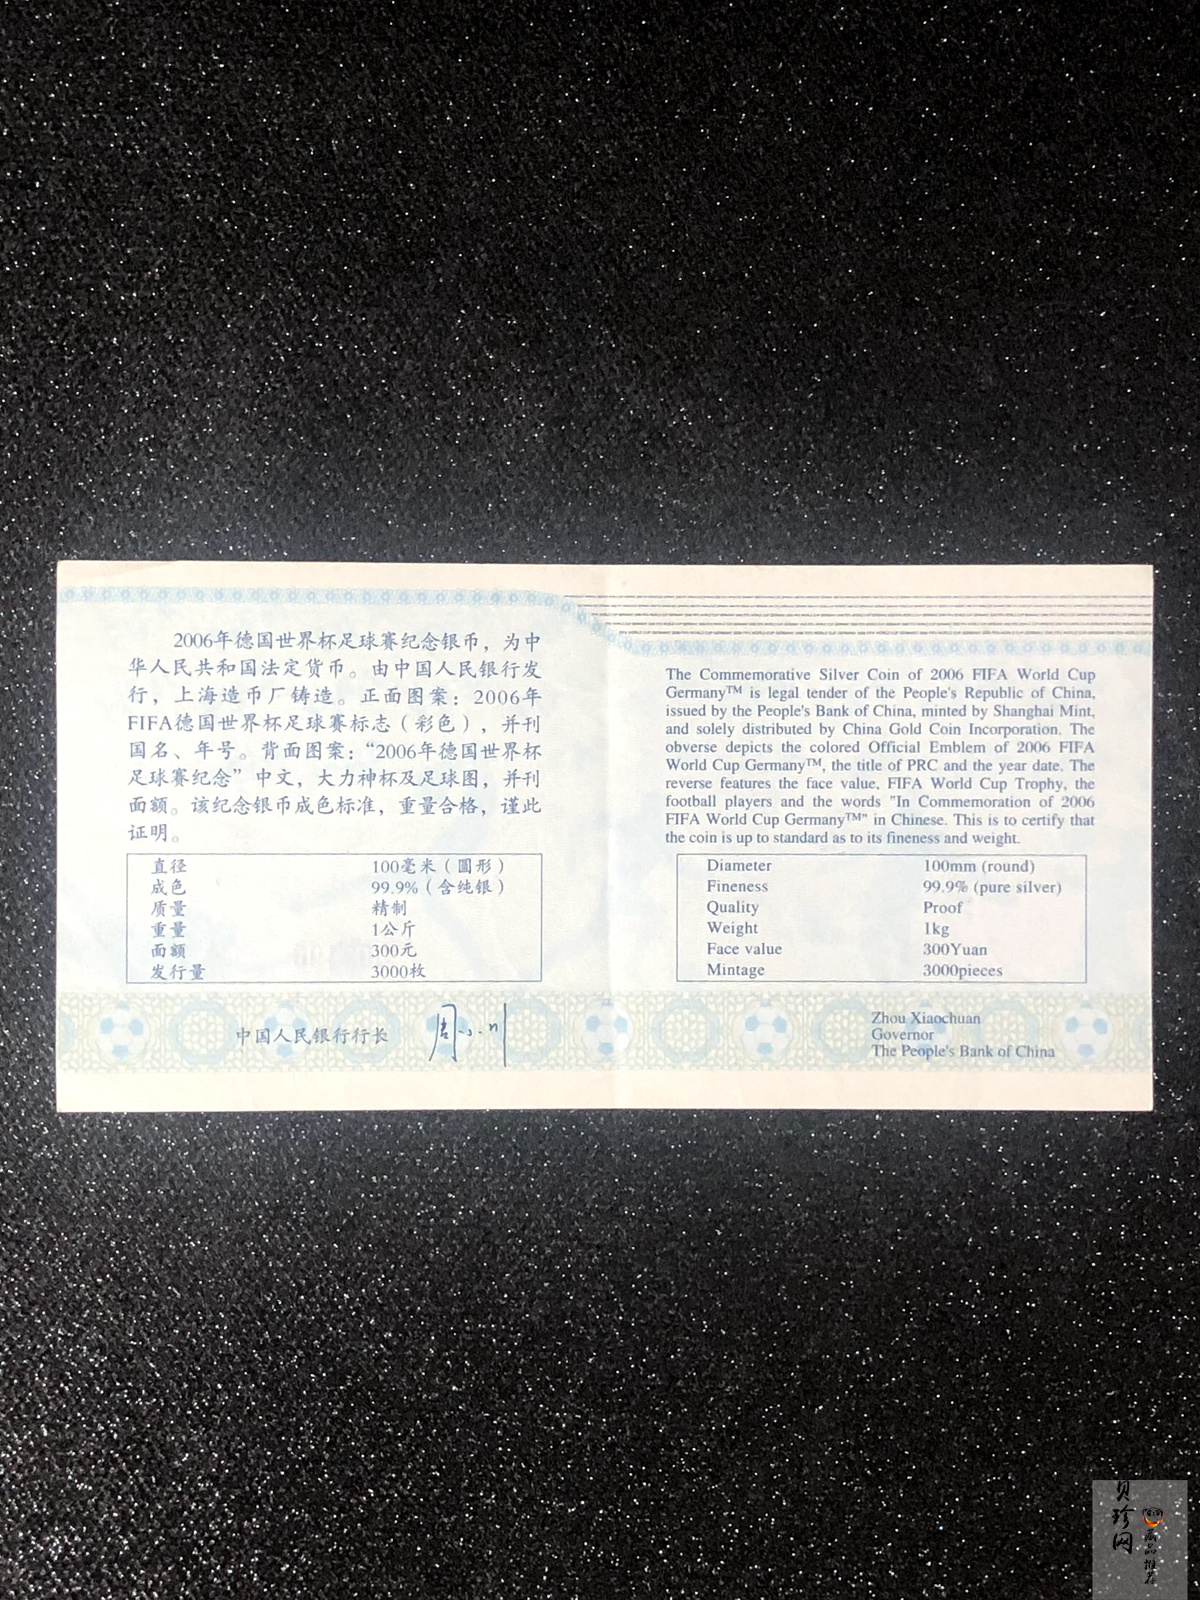 2006年德国世界杯足球赛纪念银币，为中
华人民共和国法定货币。由中国人民银行发
行，上海造币厂铸造。正面图案：2006年
FIFA德国世界杯足球赛标志（彩色），并刊
国名、年号。背面图案：“2006年德国世界杯
足球赛纪念”中文，大力神杯及足球图，并刊
面额。该纪念银币成色标准，重量合格，谨此
证明。
直径 100毫米（圆形）
成色 99.9%（含纯银）
质量 精制
重量 1公斤
面额 300元
发行量 3000枚
中国人民银行行长 周小川
The Commemorative Silver Coin of 2006 FIFA World Cup
Germany™ is legal tender of the People's Republic of China,
issued by the People's Bank of China, minted by Shanghai Mint,
and solely distributed by China Gold Coin Incorporation. The
obverse depicts the colored Official Emblem of 2006 FIFA
World Cup Germany™, the title of PRC and the year date. The
reverse features the face value, FIFA World Cup Trophy, the
football players and the words "In Commemoration of 2006
FIFA World Cup Germany™" in Chinese. This is to certify that
the coin is up to standard as to its fineness and weight.
Diameter 100mm (round)
Fineness 99.9% (pure silver)
Quality Proof
Weight 1kg
Face value 300Yuan
Mintage 3000pieces
Zhou Xiaochuan
Governor
The People's Bank of China
贝珍网
藏品推荐